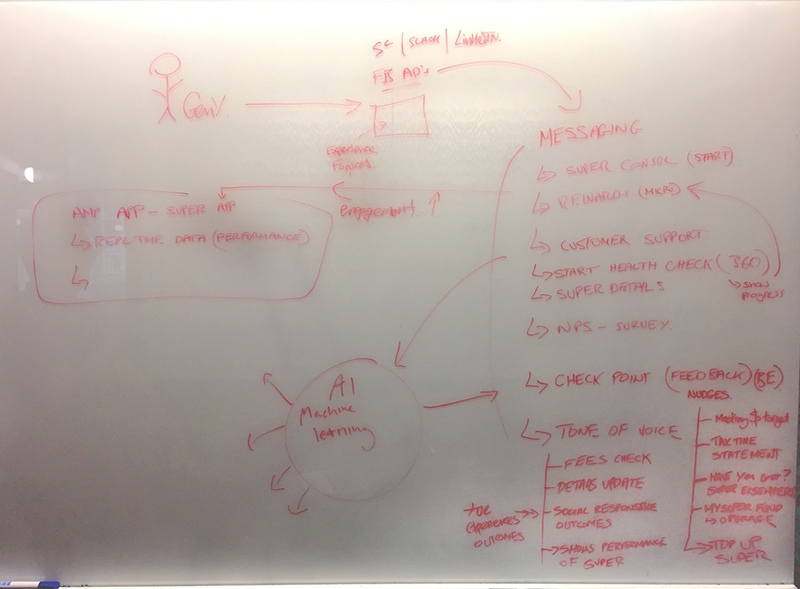 SC | SLACK | LINKEDIN
FB AD's
Gen Y.
EXPERIENCE
FORWARD.
MESSAGING
↳ SUPER CONSOL (START)
↳ REWARDS (MKR)
↳ CUSTOMER SUPPORT
↳ START HEALTH CHECK (360)
↳ SHOW
PROGRESS
↳ SUPER DETAILS
↳ NPS - SURVEY.
↳ CHECK POINT (FEEDBACK) (BE)
NUDGES.
↳ TONE OF VOICE
engagement ↑
AMP APP - SUPER APP
↳ REAL TIME DATA (PERFORMANCE)
↳
AI
Machine
learning
+ve
experiences
OUTCOMES
FEES CHECK
DETAILS UPDATE
SOCIAL RESPONSIVE
OUTCOMES
SHOWS PERFORMANCE
OF SUPER
Meeting $ target
TAX TIME
STATEMENT
HAVE YOU GOT?
SUPER ELSEWHERE
MYSUPER FUND
TOP UP
SUPER